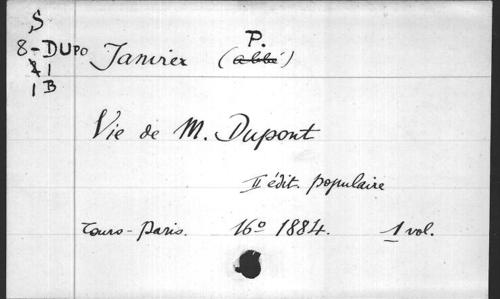 S
8-DUPO Janvier (P. abbé)
1
1 B
Vie de M. Dupont
II édit. populaire
Tours-Paris. 16º 1884. 1 vol.